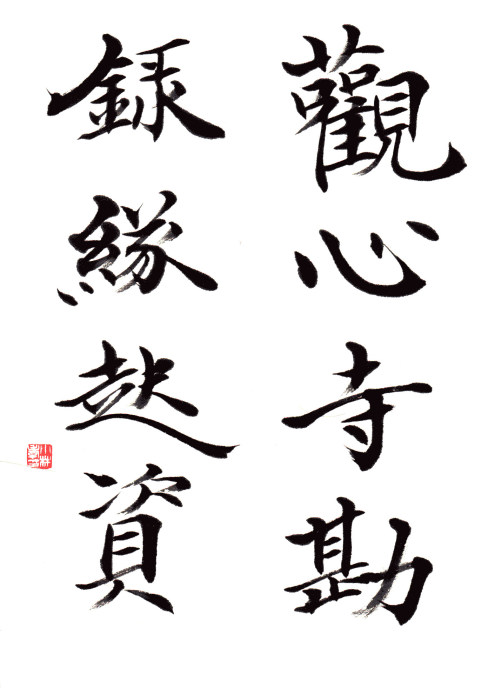 觀心寺勘
録縁起資